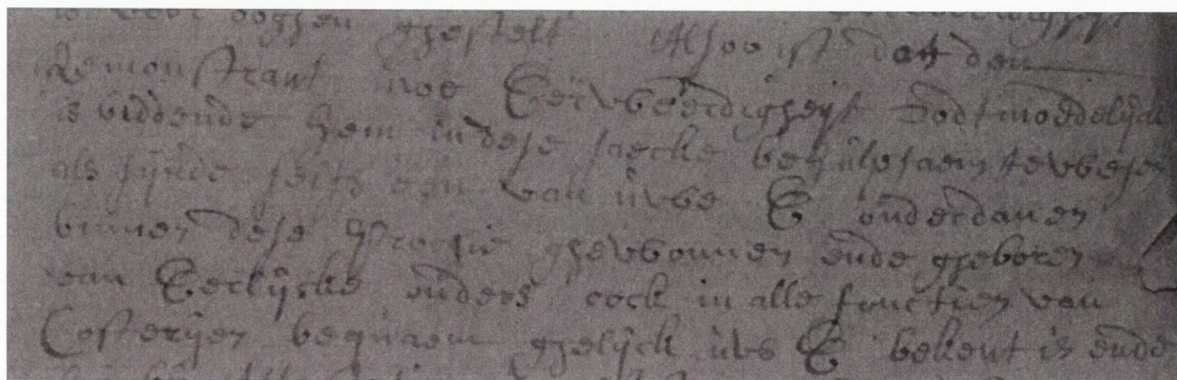 is voor ooghen ghestelt Alsoo ist datt den
Remonstrant uwe Eerweerdigheijt oodtmoedelijck
is biddende hem in dese saecke behulpsaem te wesen
als sijnde selfs een van uwe E onderdanen
binnen dese prochie ghewonnen ende gheboren
van Eerlijcke ouders oock in alle functien van
Costerijen bequaem ghelijck uwe E bekent is ende